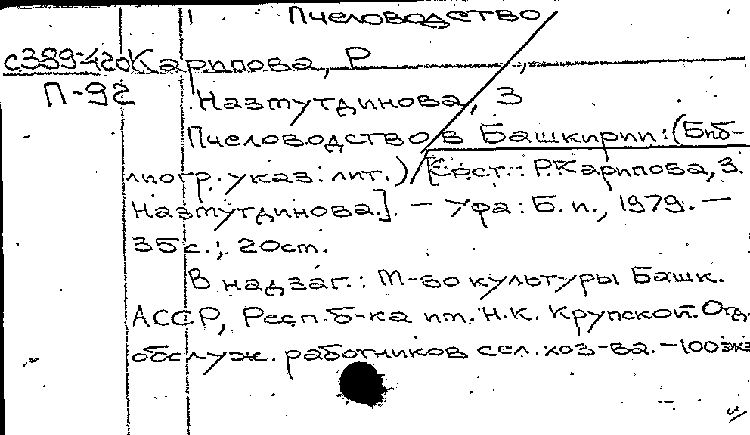 Пчеловодство
с389-420 Карипова, Р
П-92 Назмутдинова, З
Пчеловодство в Башкирии: (Биб-
лиогр. указ. лит.) [Сост.: Р. Карипова, З.
Назмутдинова.]. — Уфа: Б. и., 1979. —
35 с.; 20 см.
В надзаг.: М-во культуры Башк.
АССР, Респ. б-ка им. Н.К. Крупской. Отд.
обслуж. работников сел. хоз-ва. — 100 экз